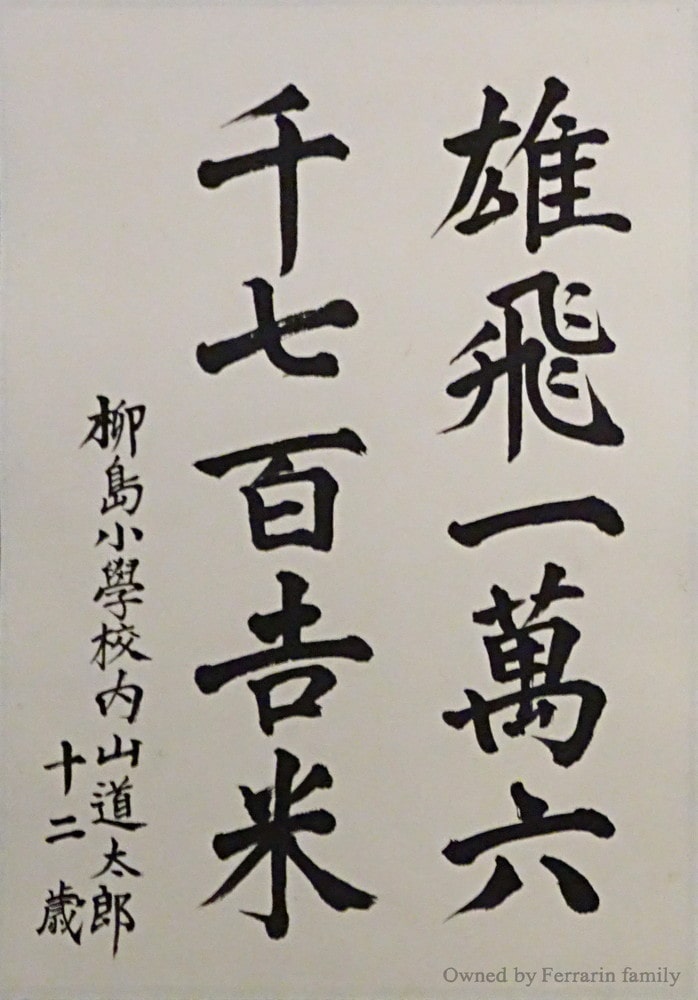 雄飛一萬六
千七百𠮷米
柳島小學校内山道太郎
十二歳
Owned by Ferrarin family